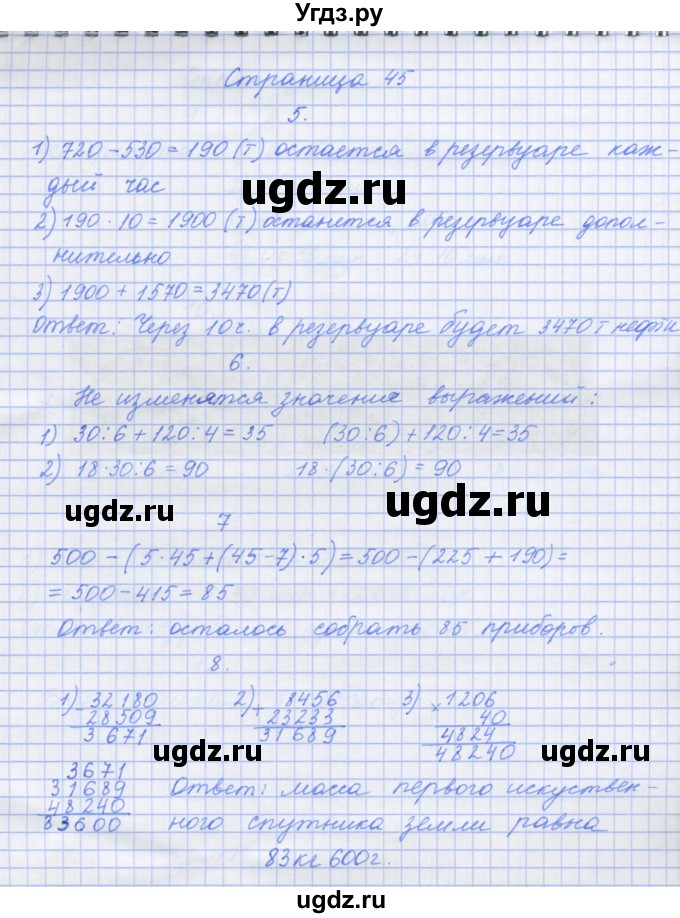 Угдз.ру
Страница 45
5.
1) 720 - 530 = 190 (т) остается в резервуаре каж-
дый час
ugdz.ru
2) 190 · 10 = 1900 (т) останется в резервуаре допол-
нительно
3) 1900 + 1570 = 3470 (т)
Ответ: Через 10 ч. в резервуаре будет 3470 т нефти
6.
Не изменятся значения выражений:
1) 30:6 + 120:4 = 35 (30:6) + 120:4 = 35
2) 18·30:6 = 90 18·(30:6) = 90
ugdz.ru ugdz.ru
7
500 - (5·45 + (45-7)·5) = 500 - (225 + 190) =
= 500 - 415 = 85
Ответ: осталось собрать 85 приборов.
8.
1) - 32180 2) + 8456 3) × 1206
28509 23233 40
3671 31689 4824
48240
ugdz.ru ugdz.ru
3671
31689 Ответ: масса первого искуствен-
48240
83600 ного спутника земли равна
83 кг 600 г.
ugdz.ru